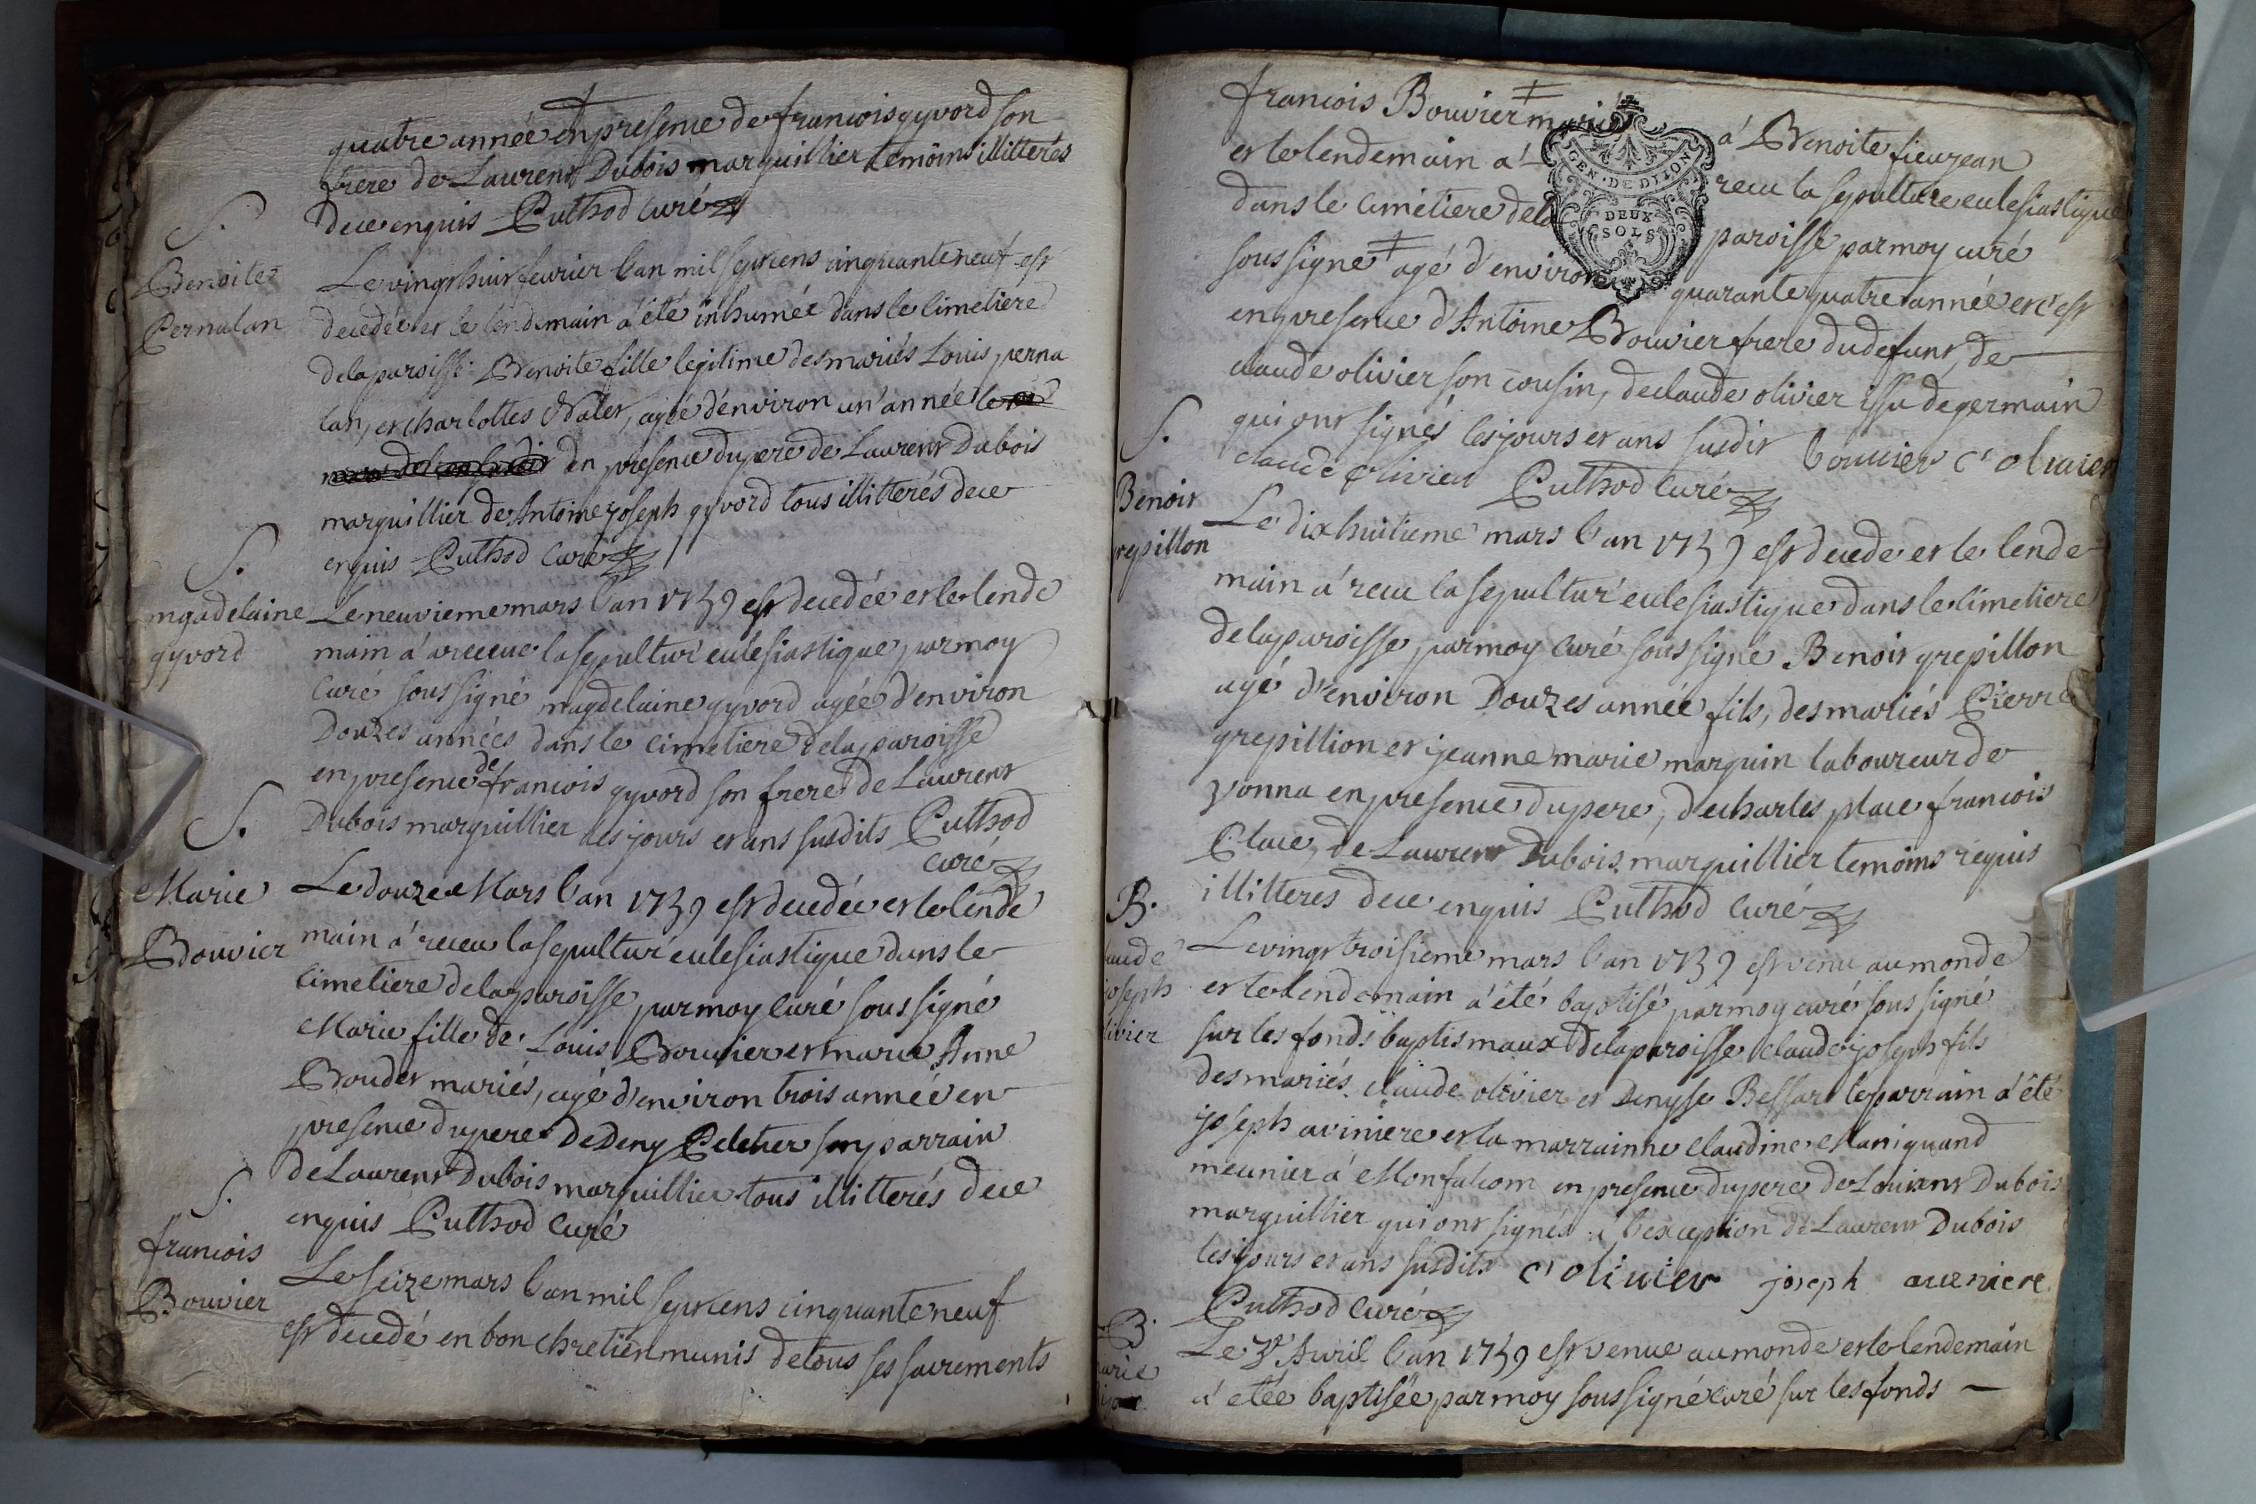 quatre année en presence de francois gyvord son
frere de Laurent Dubois marguillier temoins illitterés
de ce enquis Puthod curé
S.
Benoite
Pernalan
Le vingt huit fevrier l'an mil sept cens cinquante neuf est
decedée et le lendemain a été inhumée dans le cimetiere
de la paroisse Benoite fille legitime des mariés Louis perna
lan, et charlottes agée d'environ un' année
en presence du pere de Laurent Dubois
marguillier de Antoine joseph gyvord tous illitterés de ce
enquis Puthod Curé
S.
magdelaine
gyvord
Le neuvieme mars l'an 1759 est decedée et le lende
main a receue la sepultur' eclesiastique par moy
Curé sous signé magdelaine gyvord agée d'environ
Douzes années dans le cimetiere de la paroisse
en presence de francois gyvord son frere de Laurent
Dubois marguillier les jours et ans susdits Puthod
curé
S.
Marie
Bouvier
Le douze Mars l'an 1759 est decedée et le lende
main a receu la sepultur' eclesiastique dans le
cimetiere de la paroisse par moy Curé sous signé
Marie fille de Louis Bouvier et marie Anne
Boudet mariés, agé d'environ trois année en
presence du pere De Deny Peletier son parrain
de Laurent Dubois marguillier tous illitterés de ce
enquis Puthod Curé
S.
francois
Bouvier
Le seize mars l'an mil sept cens cinquante neuf
est decedé en bon chretien munis de tous ses sacrements
francois Bouvier marié à Benoite fieujean
et le lendemain a recu la sepulture eclesiastique
dans le cimetiere de la paroisse par moy curé
sous signé agé d'environ quarante quatre année et c'est
GEN · DE DIJON
DEUX
SOLS
en presence d'Antoine Bouvier frere du defunt, de
claude olivier son cousin, de claude olivier issu de germain
qui ont signés les jours et ans susdit bouvier c' olivier
claude olivier Puthod Curé
S.
Benoit
grepillon
Le dix huitieme mars l'an 1759 est decede et le lende
main a recu la sepultur' eclesiastique dans le cimetiere
de la paroisse par moy curé sous signé Benoit grepillon
agé d'environ Douzes année fils, des mariés Pierre
grepillion et jeanne marie marguin laboureur de
yonna en presence du pere, de charles place francois
Place, de Laurent Dubois marguillier temoins requis
illitteres de ce enquis Puthod Curé
B.
laude
joseph
livier
Le vingt troisieme mars l'an 1759 est venu au monde
et le lendemain a été baptisé par moy curé sous signé
sur les fonds baptismaux de la paroisse claude joseph fils
des mariés claude olivier et Denyse Bessar le parrain a été
joseph aviniere et la marrainne Claudine Maniquand
meunier a Monfalcom en presence du pere de Laurent Dubois
marguillier qui ont signés a l'exception de Laurent Dubois
les jours et ans susdits c' olivier joseph aveniere
Puthod Curé
B.
arie
Le 3e Avril l'an 1759 est venue au monde et le lendemain
a etée baptisée par moy sous signé curé sur les fonds